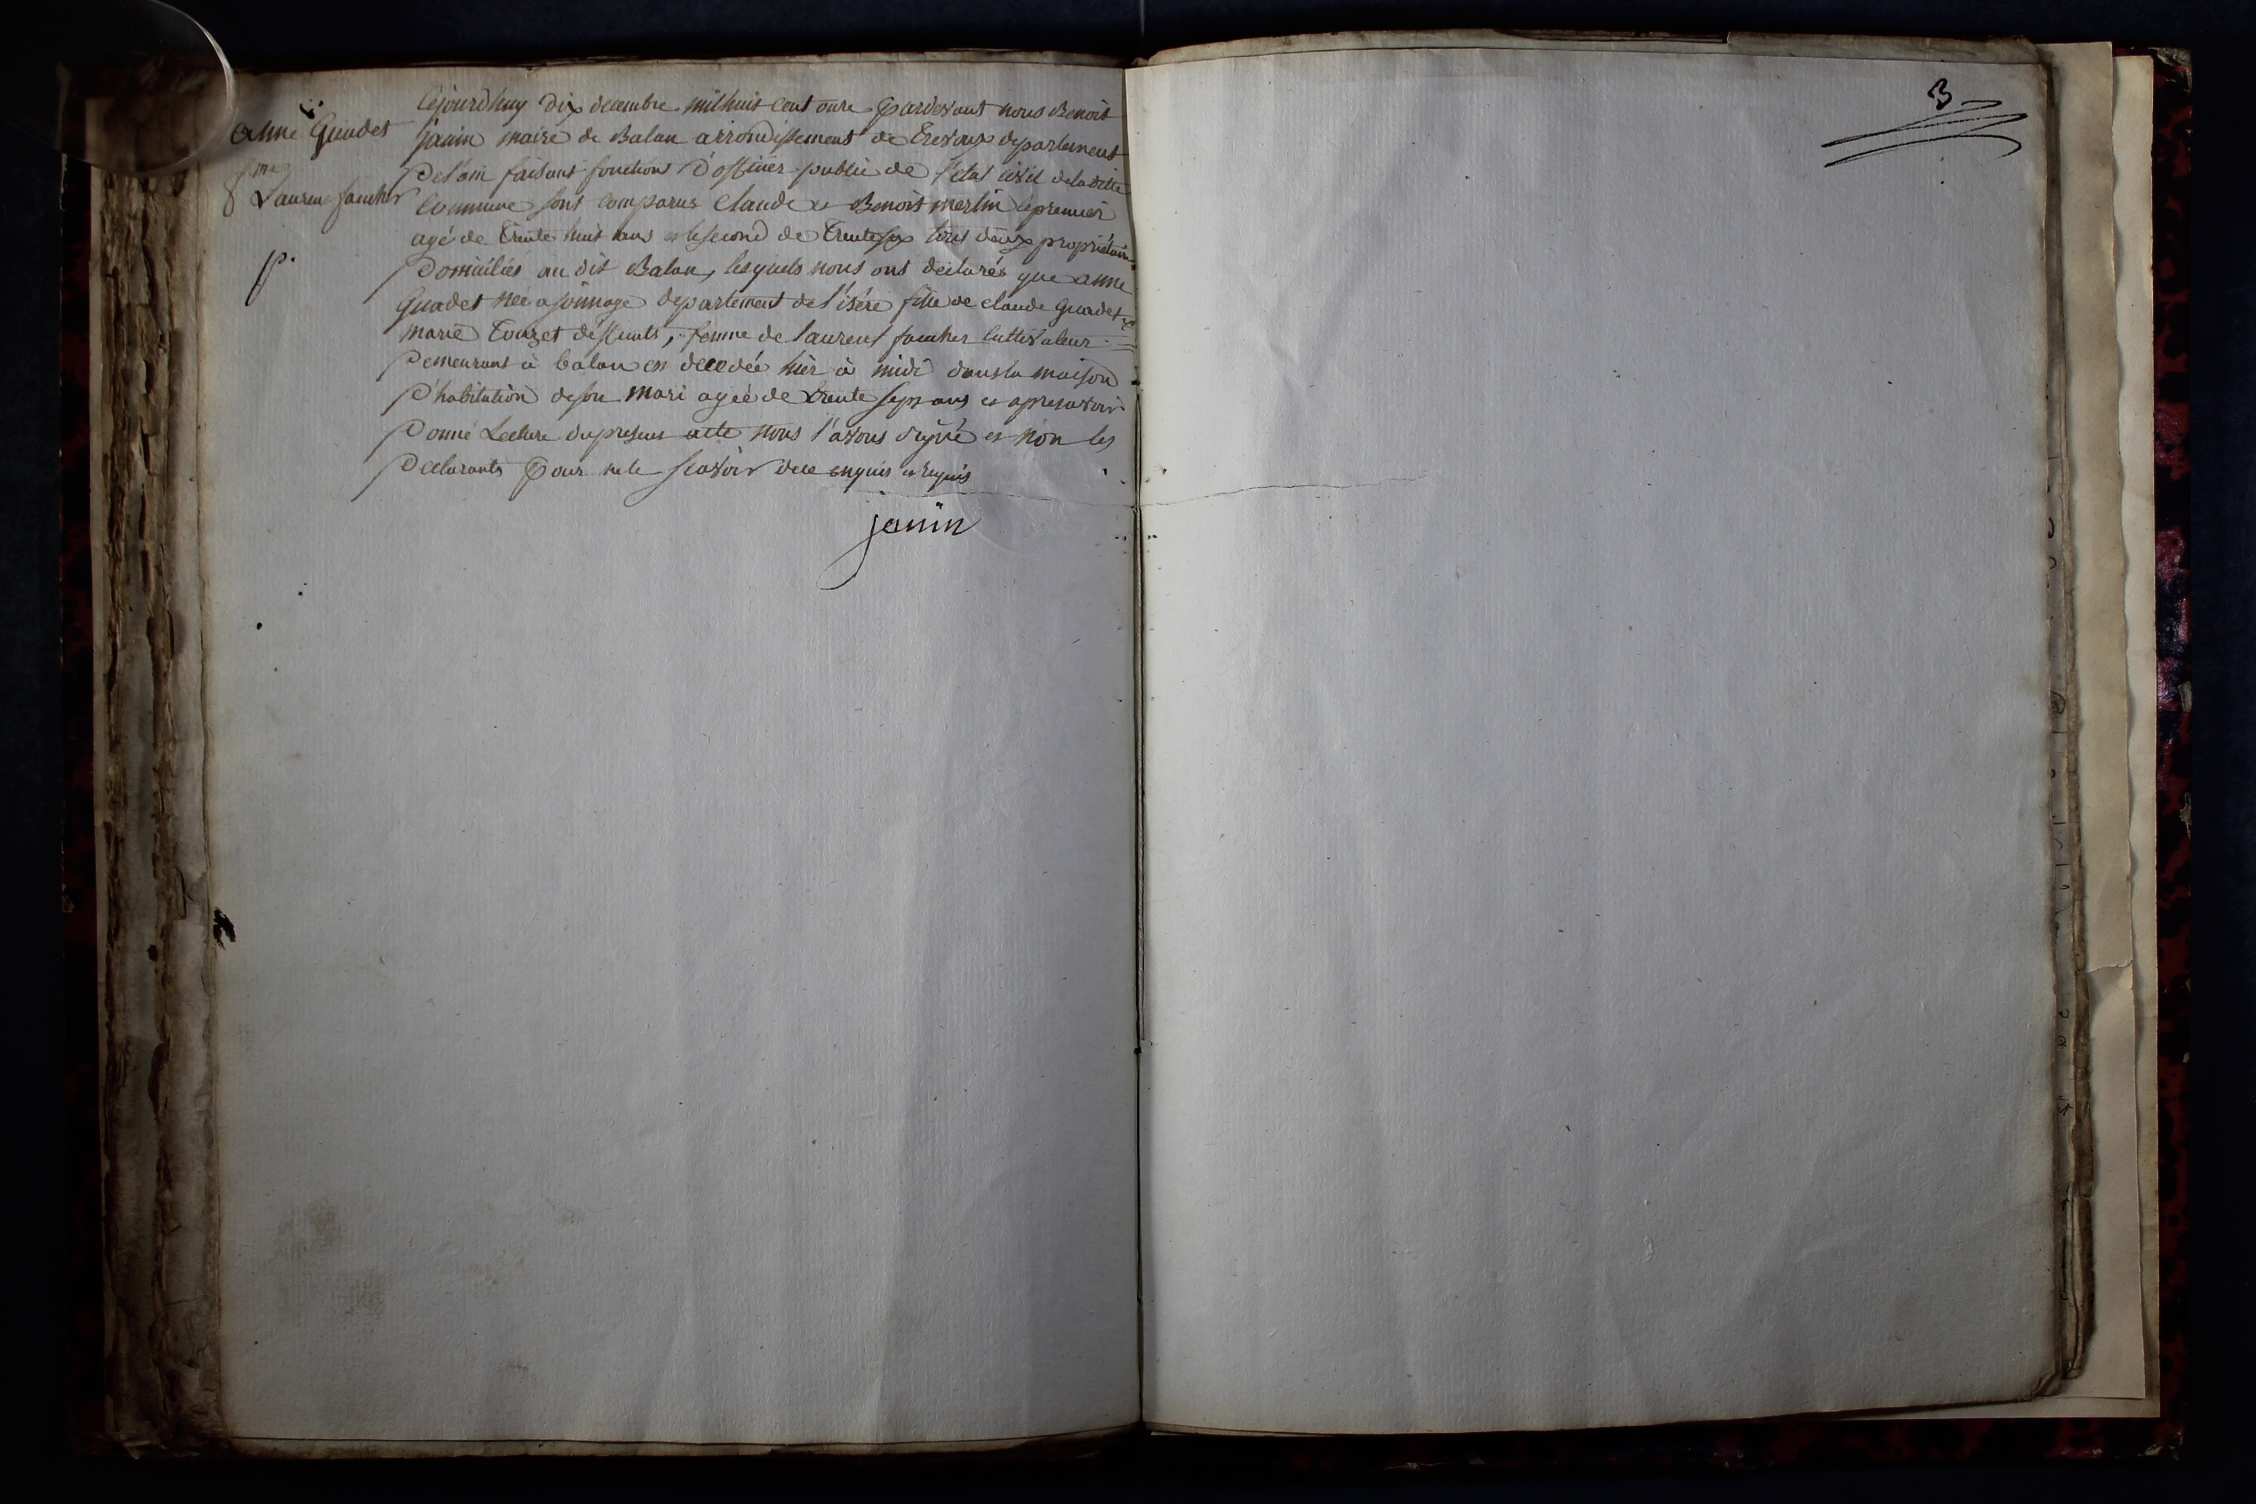 Anne Guadet
fme
Lauren faucher
p.
Cejourdhuy dix decembre mil huit cent onze pardevant nous Benoit
janin maire de Balan arrondissement de Trevoux departement
De l'ain faisant fonction D'officier public de l'etat civil de la ditte
Commune sont comparus Claude et Benoit merlin le premier
agé de trente huit ans et le second de trente six tous deux propriétaires
Domiciliés au dit Balan, lesquels nous ont declarés que anne
Guadet née a jonnage departement de l'isére fille de claude Guadet et
marie Couzet déffunts, femme de laurent faucher cultivateur
Demeurant à balan est decedée hièr à midi dans la maison
D'habitation de son mari agée de trente sept ans et apres avoir
Donné Lecture du present acte nous l'avons signé et non les
Declarants pour ne le scavoir de ce enquis et requis
janin
3